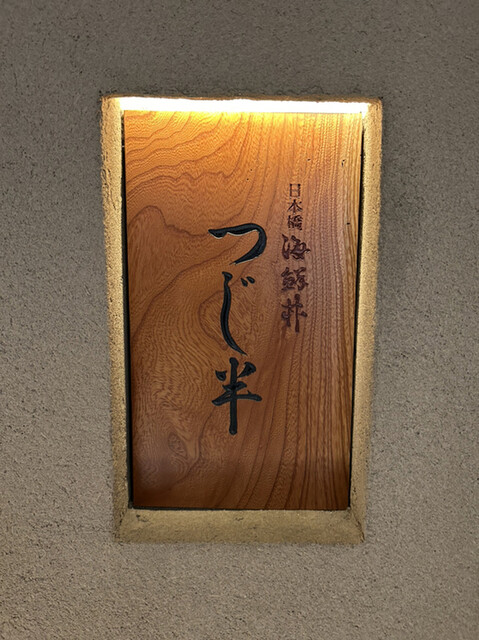 日本橋 海鮮丼
つじ半